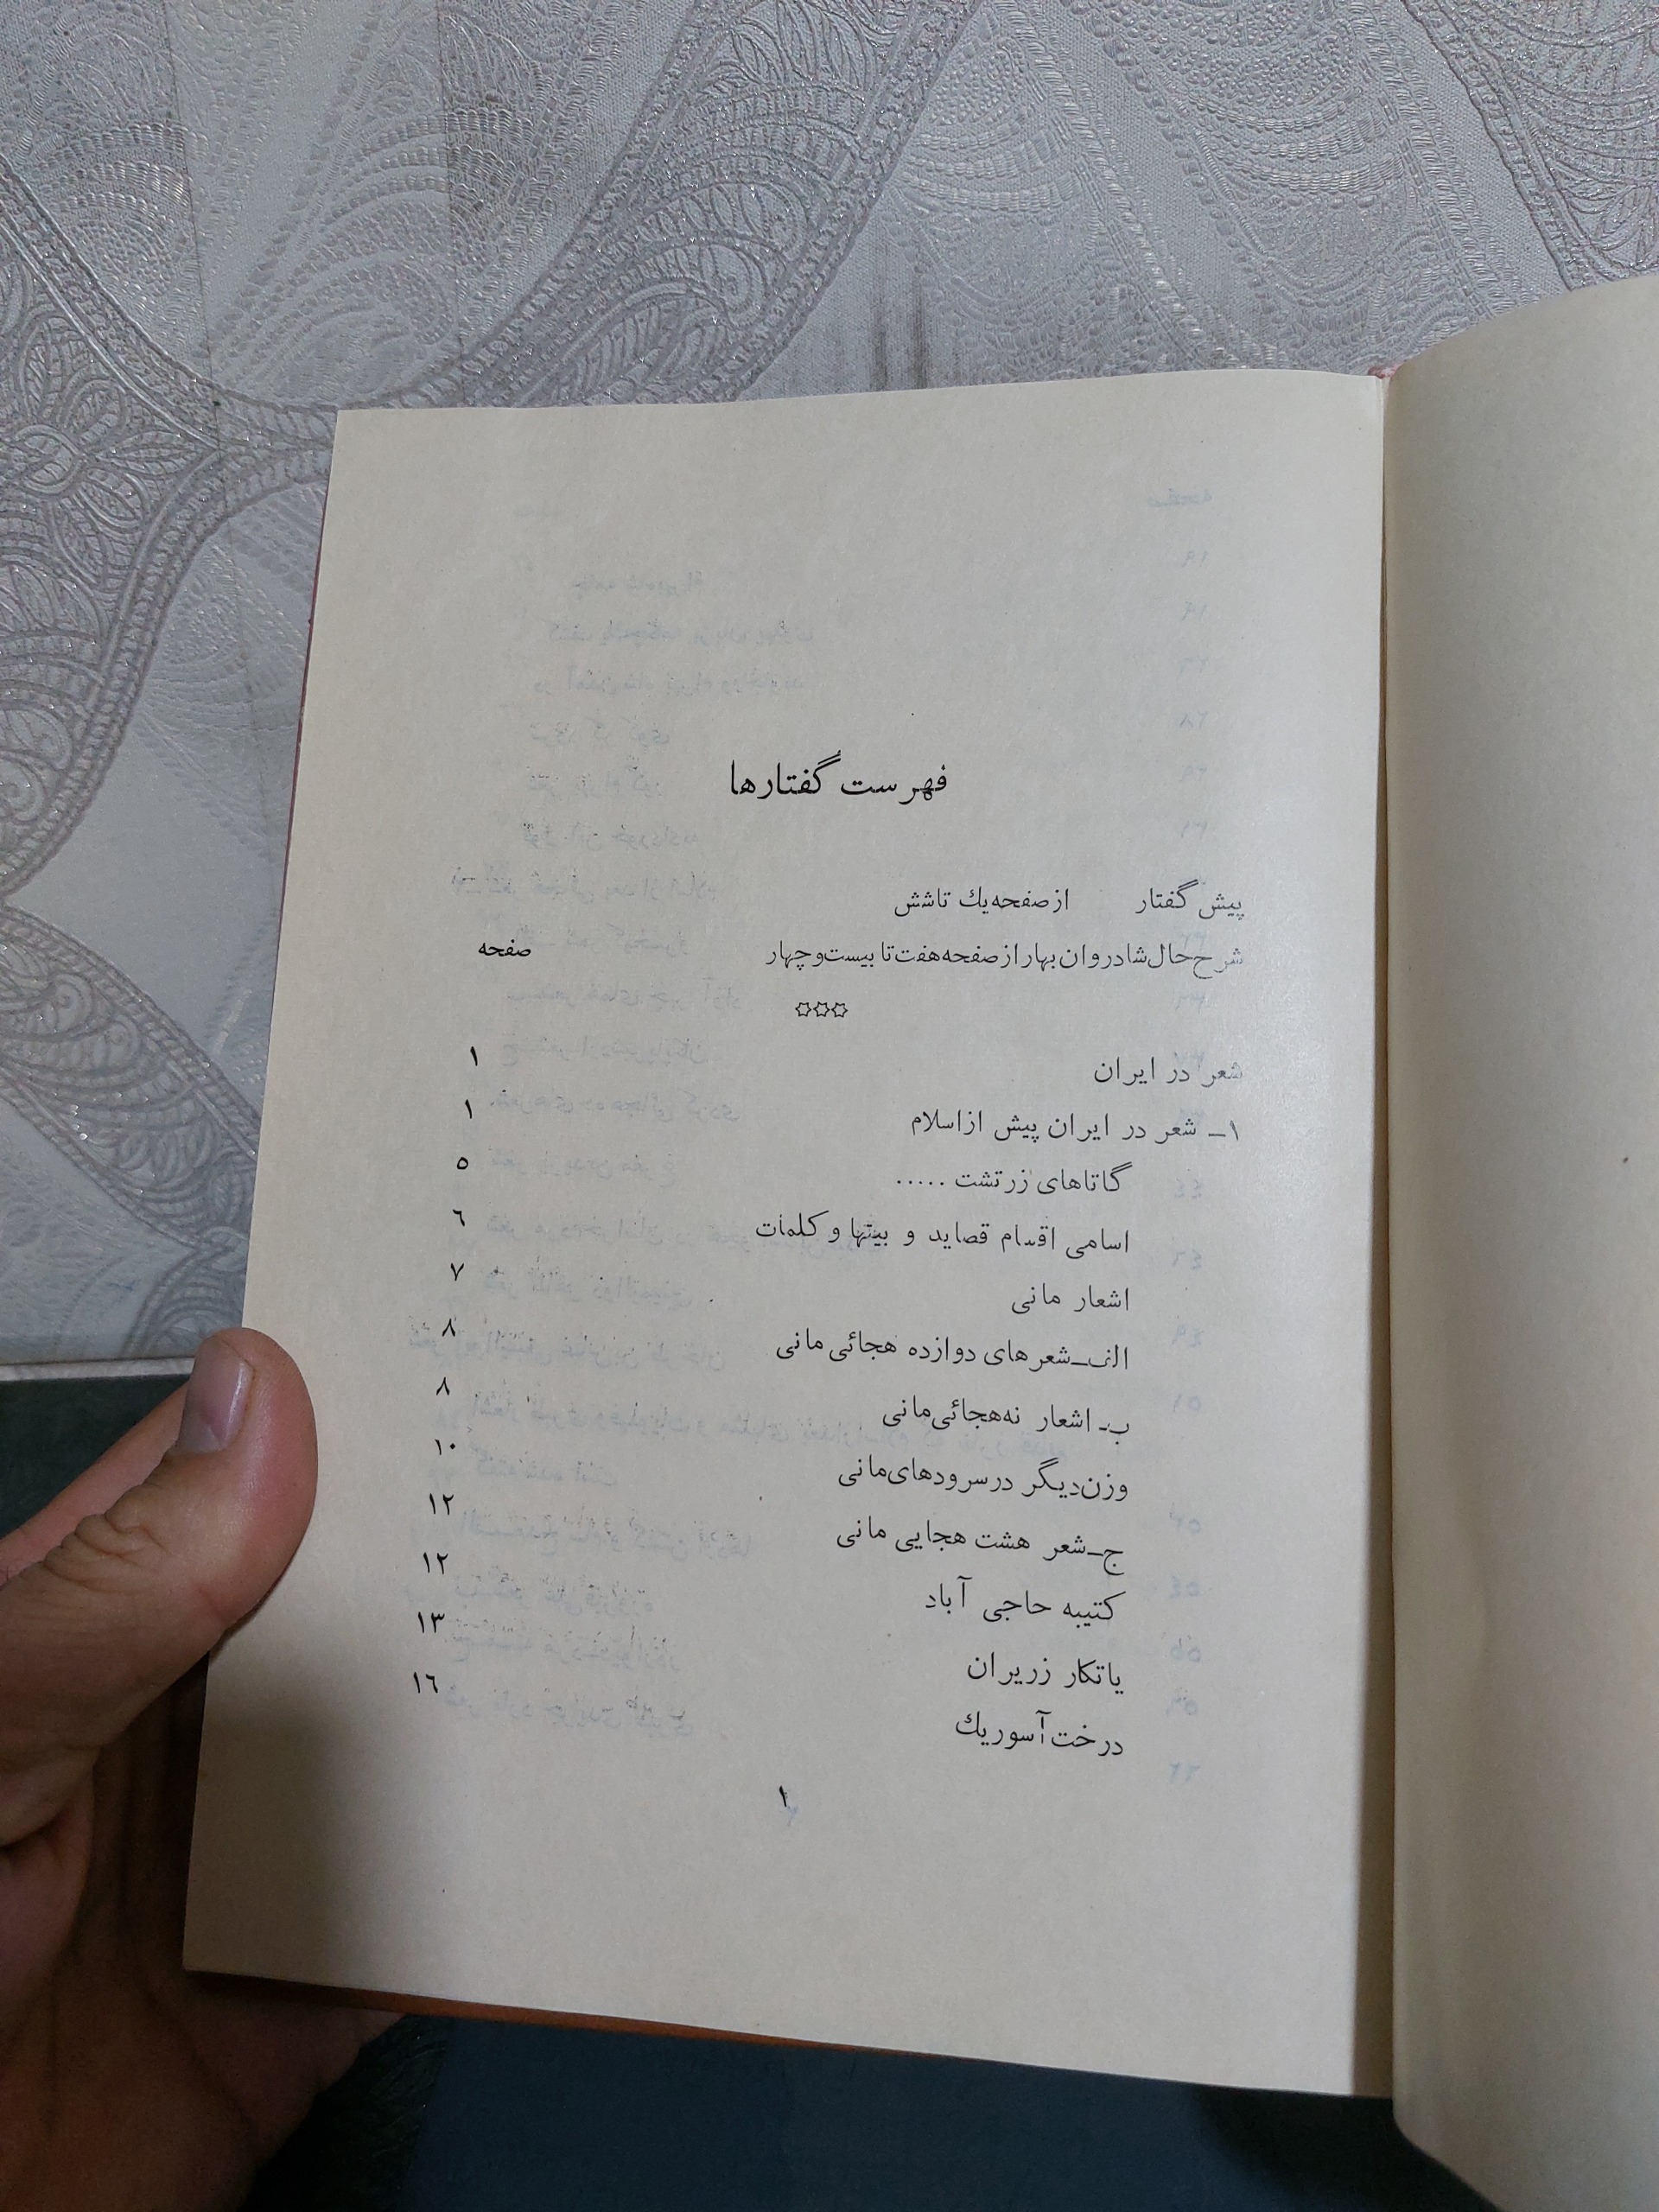 فهرست گفتارها
پیش گفتار از صفحه یك تا شش
شرح حال شادروان بهار از صفحه هفت تا بیست و چهار صفحه
☆☆☆
شعر در ایران ۱
۱ـ شعر در ایران پیش از اسلام ۱
گاتاهای زرتشت ..... ٥
اسامی اقسام قصاید و بیتها و کلمات ٦
اشعار مانی ۷
الف‌ـ‌شعرهای دوازده هجائی مانی ۸
ب‌ـ اشعار نه هجائی مانی ۸
وزن دیگر در سرودهای مانی ۱۰
ج‌ـ‌شعر هشت هجایی مانی ۱۲
کتیبه حاجی آباد ۱۲
یاتکار زریران ۱۳
درخت آسوریك ۱٦
۱